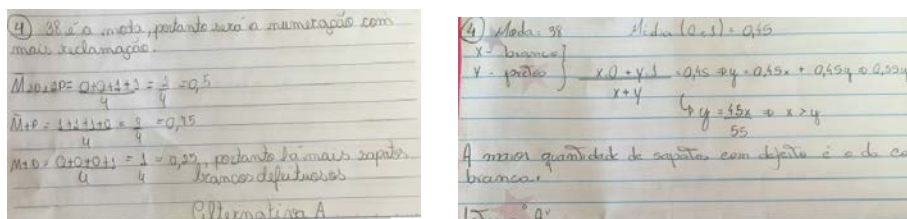 ④ 38 é a moda, portanto será a numeração com
mais reclamação.
M2D2P = 0+0+1+1 = 2 = 0,5
4 4
M+P = 1+1+1+0 = 3 = 0,75
4 4
M+D = 0+0+0+1 = 1 = 0,25, portanto há mais sapatos
4 4 brancos defeituosos
Alternativa A
④ Moda: 38 Média (0 e 1) = 0,45
X - brancos
Y - pretos x.0 + y.1 = 0,45 ⇒ y = 0,45x + 0,45y ⇒ 0,55y
x+y
↳ y = 45x ⇒ x > y
55
A maior quantidade de sapatos com defeito é o da co
branca.